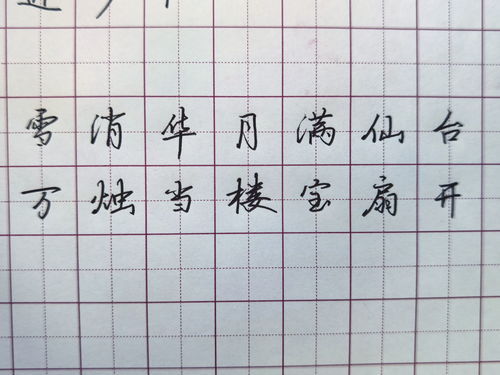 雪消华月满仙台
万烛当楼宝扇开